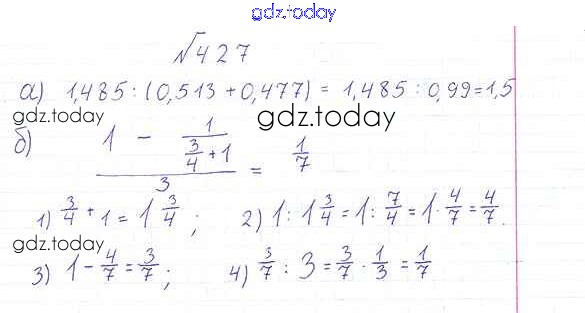 gdz.today
№427
а) 1,485 : (0,513 + 0,477) = 1,485 : 0,99 = 1,5
gdz.today
gdz.today
б) (1 - 1/(3/4 + 1))/3 = 1/7
1) 3/4 + 1 = 1 3/4 ; 2) 1 : 1 3/4 = 1 : 7/4 = 1 · 4/7 = 4/7.
gdz.today
3) 1 - 4/7 = 3/7 ; 4) 3/7 : 3 = 3/7 · 1/3 = 1/7